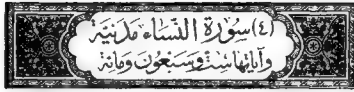 (٤) سُورَةُ النِّسَاءِ مَدَنِيَّة
وَآيَاتُهَا سِتٌّ وَسَبْعُونَ وَمِائَة